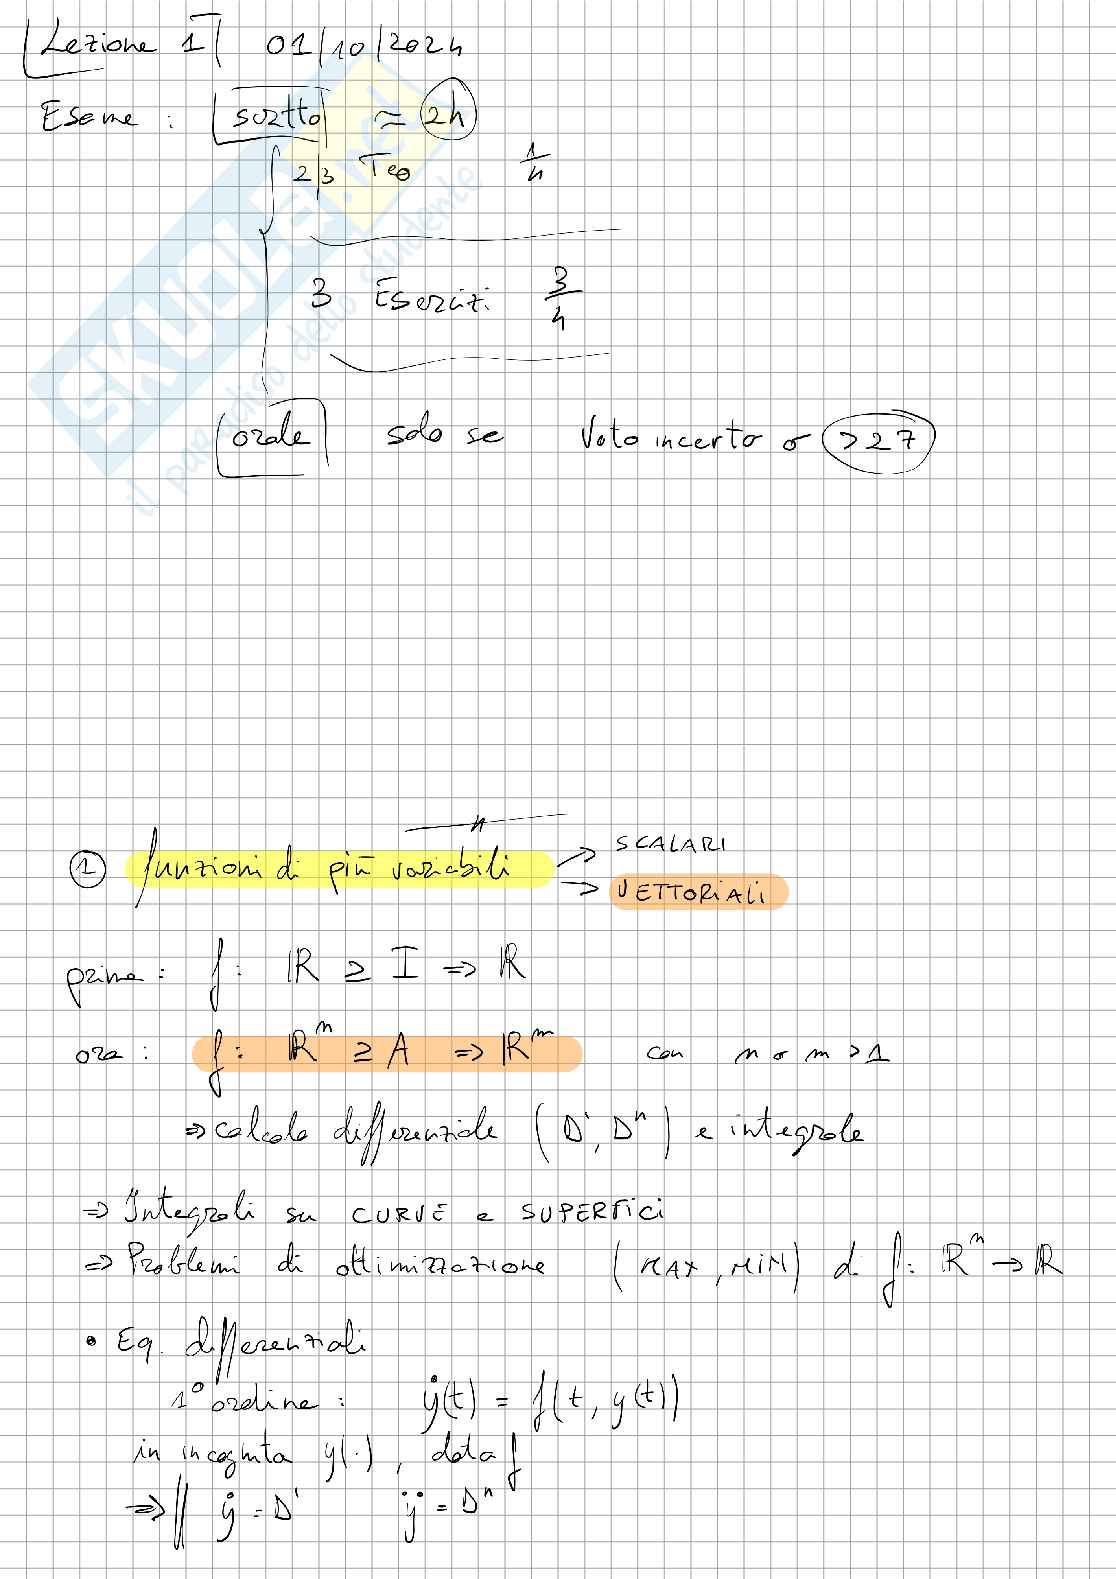 Lezione 1 01/10/2024
Esame : scritto ≈ 2h
2/3 Teo 1/4
3 Esercizi 3/4
orale solo se Voto incerto o >27
SKUOLA.net
il paradiso dello studente
n
① funzioni di più variabili → SCALARI
→ VETTORIALI
prima : f : ℝ ⊇ I ⇒ ℝ
ora : f : ℝⁿ ⊇ A ⇒ ℝᵐ con n o m > 1
⇒ calcolo differenziale ( D', D'' ) e integrale
⇒ Integrali su CURVE e SUPERFICI
⇒ Problemi di ottimizzazione ( MAX, MIN ) di f : ℝⁿ → ℝ
• Eq. differenziali
1° ordine : ẏ(t) = f(t, y(t))
in incognita y(·) , data f
⇒ || ẏ = D' ÿ = D''